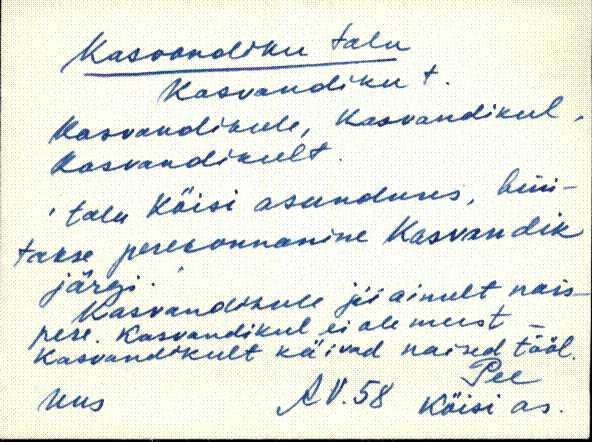 Kasvandiku talu
Kasvandiku t.
Kasvandikule, Kasvandikul,
Kasvandikult.
'talu Köisi asunduses, hüü-
takse perekonnanime Kasvandik
järgi.'
Kasvandikule jäi ainult nais-
pere. Kasvandikul ei ole meest –
Kasvandikult käivad naised tööl.
Uus A.V.58 Pee
Köisi as.